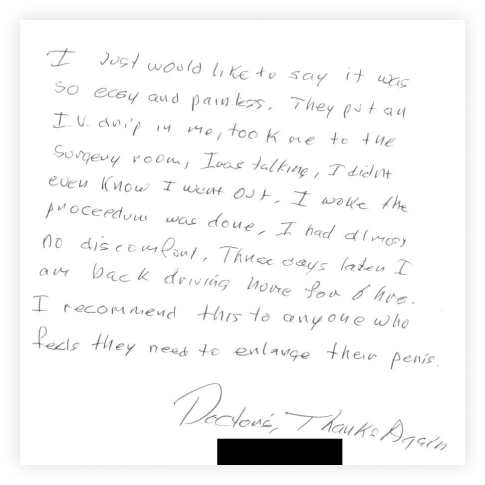 I Just would like to say it was
so easy and painless. They put an
I.V. drip in me, took me to the
surgery room, I was talking, I didnt
even know I went out. I woke the
proceedure was done, I had almost
no discomfort. Three days later I
am back driving home for 6 hrs.
I recommend this to anyone who
feels they need to enlarge their penis.
Doctors, Thanks Again